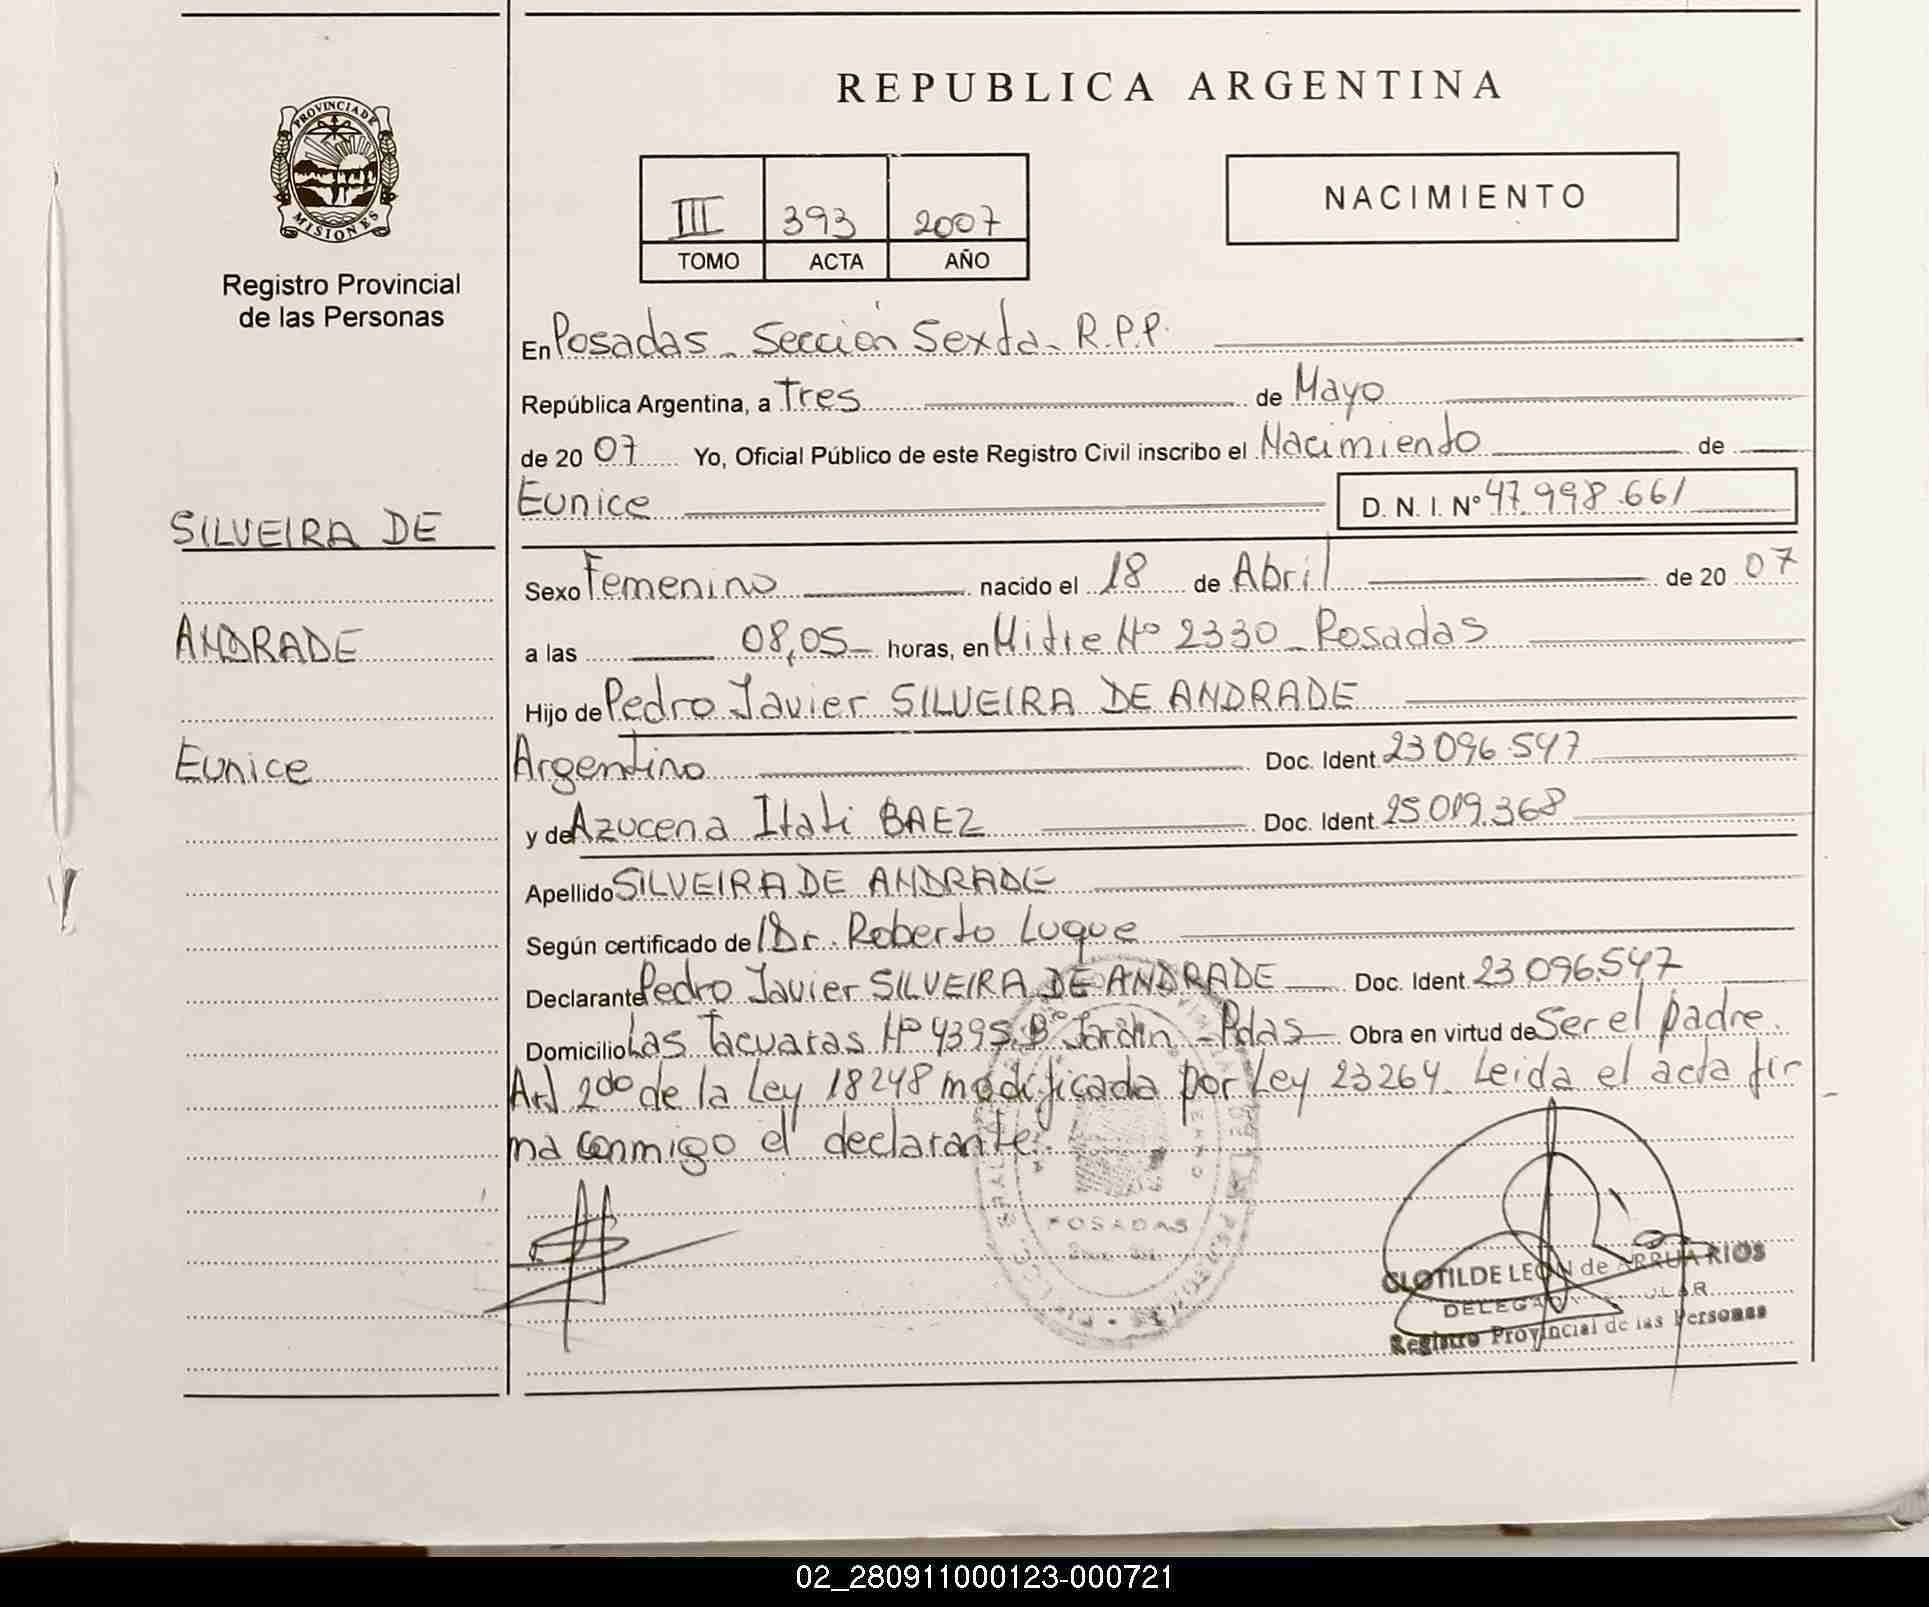 REPUBLICA ARGENTINA
PROVINCIA DE
MISIONES
Registro Provincial
de las Personas
III 393 2007
TOMO ACTA AÑO
NACIMIENTO
En Posadas - Sección Sexta - R.P.P.
República Argentina, a Tres de Mayo
de 20 07 Yo, Oficial Público de este Registro Civil inscribo el Nacimiento de
Eunice D. N. I. Nº 47.998.661
SILVEIRA DE
Sexo Femenino nacido el 18 de Abril de 20 07
ANDRADE
a las 08,05 horas, en Mitre Nº 2330 - Posadas
Hijo de Pedro Javier SILVEIRA DE ANDRADE
Eunice
Argentino Doc. Ident. 23 096.547
y de Azucena Itati BAEZ Doc. Ident. 25 019.368
Apellido SILVEIRA DE ANDRADE
Según certificado de Dr. Roberto Luque
Declarante Pedro Javier SILVEIRA DE ANDRADE Doc. Ident. 23 096.547
Domicilio Las Tacuaras Nº 4395 Bº Jardin - Pdas Obra en virtud de Ser el padre.
Art 2do de la Ley 18248 modificada por Ley 23264. Leida el acta fir
ma conmigo el declarante.
POSADAS
CLOTILDE LEON de ARRUA RIOS
Registro Provincial de las Personas
02_280911000123-000721